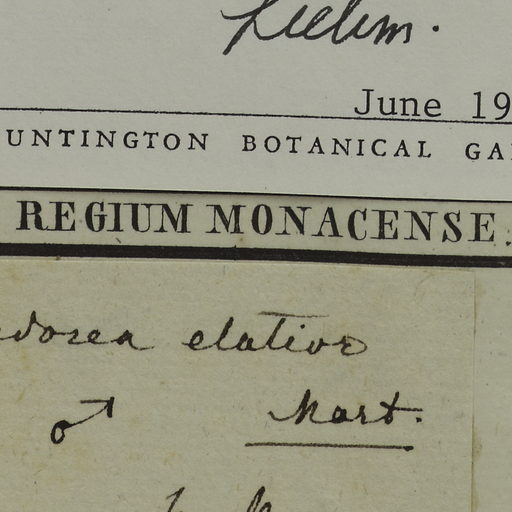 Liebm.
June 19
UNTINGTON BOTANICAL GA
REGIUM MONACENSE.
dorea elatior
♂ Mart.